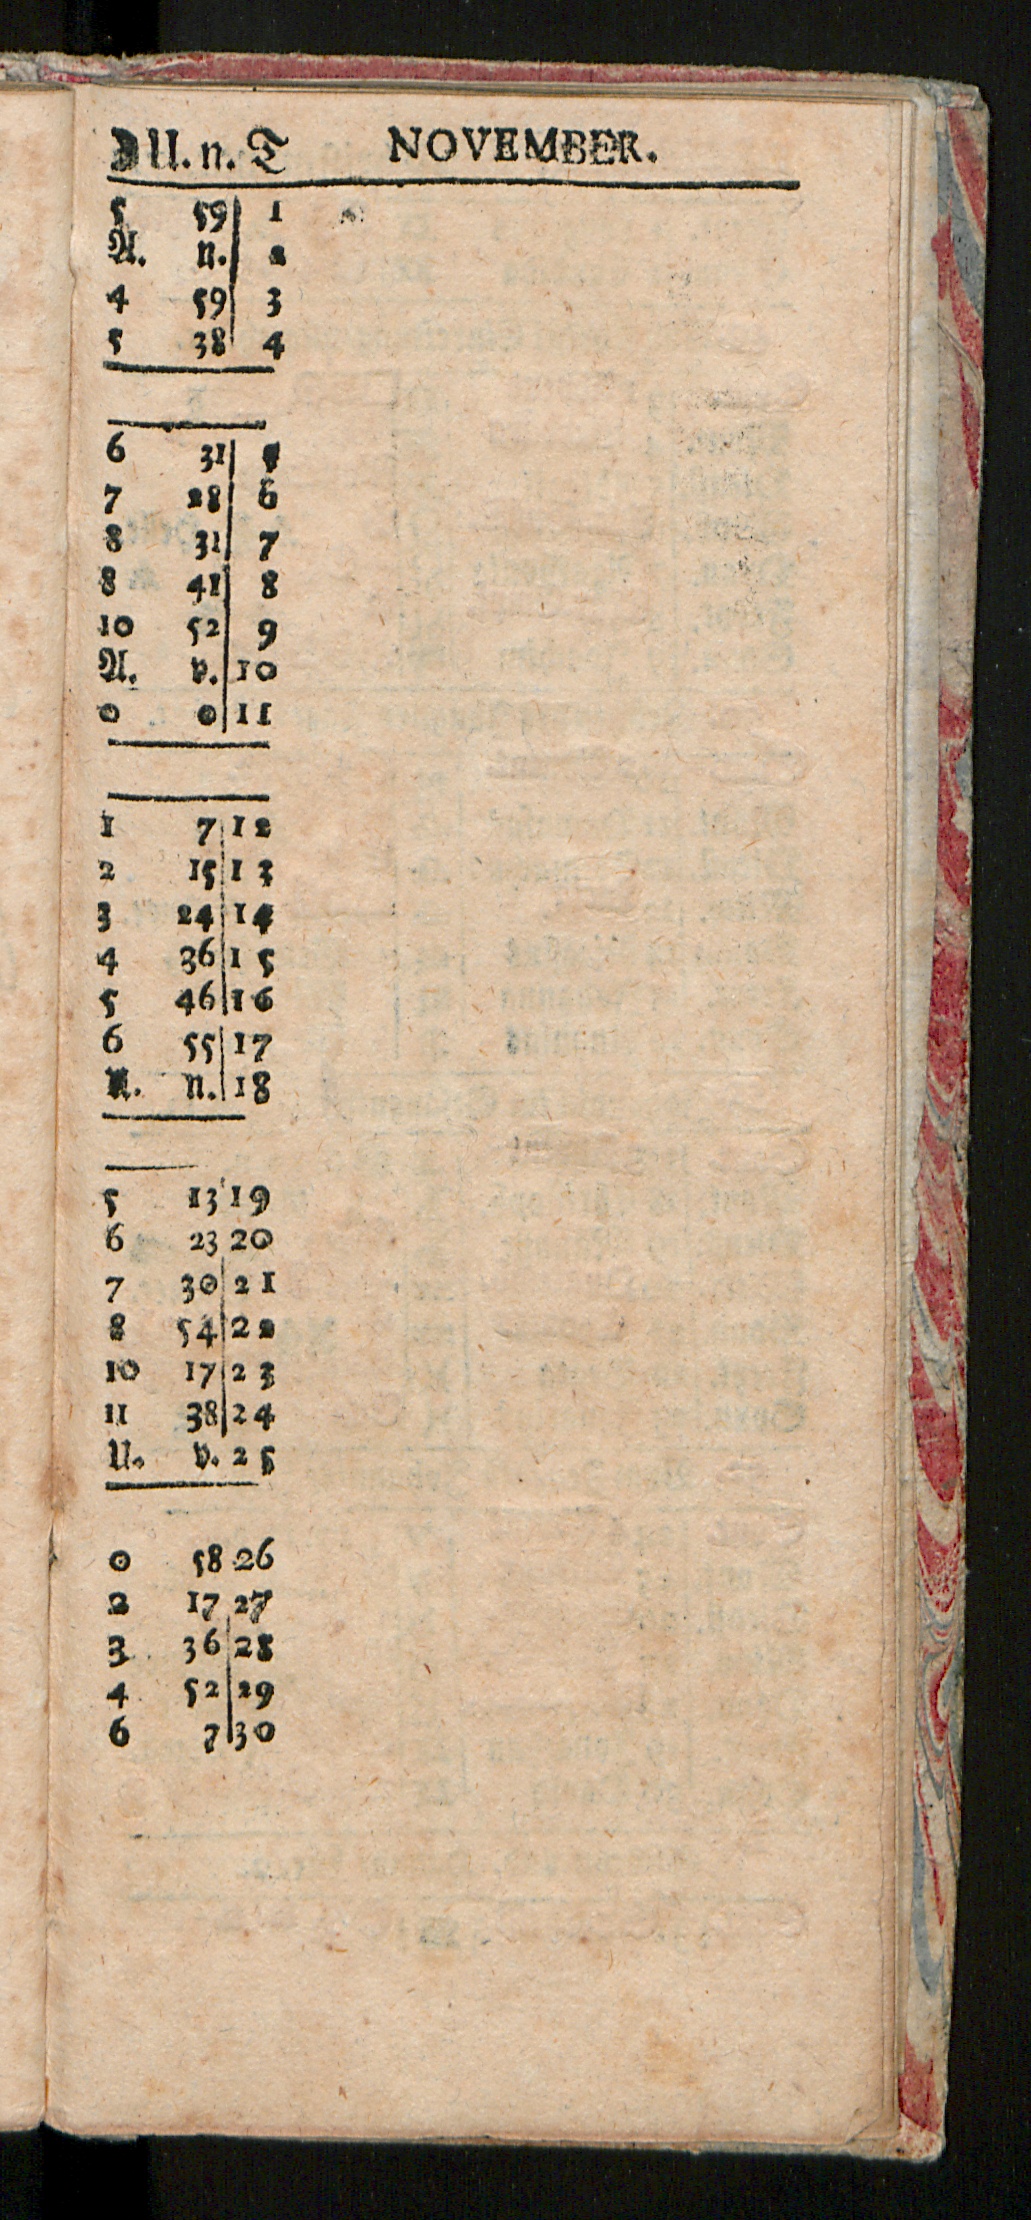 ☽ U. n. T NOVEMBER.
5 59 1
A. n. 2
4 59 3
5 38 4
6 31 5
7 28 6
8 31 7
8 41 8
10 52 9
A. v. 10
0 0 11
1 7 12
2 15 13
3 24 14
4 36 15
5 46 16
6 55 17
U. n. 18
5 13 19
6 23 20
7 30 21
8 54 22
10 17 23
11 38 24
U. v. 25
0 58 26
2 17 27
3 36 28
4 52 29
6 7 30